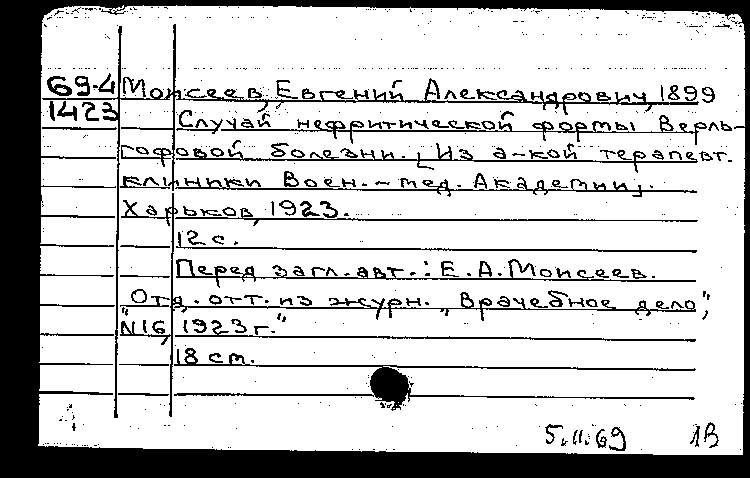 69-4 Моисеев, Евгений Александрович, 1899
1423
Случай нефритической формы Верль-
гофовой болезни. [Из а-кой терапевт.
клиники Воен.-мед. Академии].
Харьков, 1923.
12 с.
Перед загл. авт.: Е.А.Моисеев.
"Отд. отт. из журн. „Врачебное дело",
N16, 1923г."
18 см.
5.II.69 1В